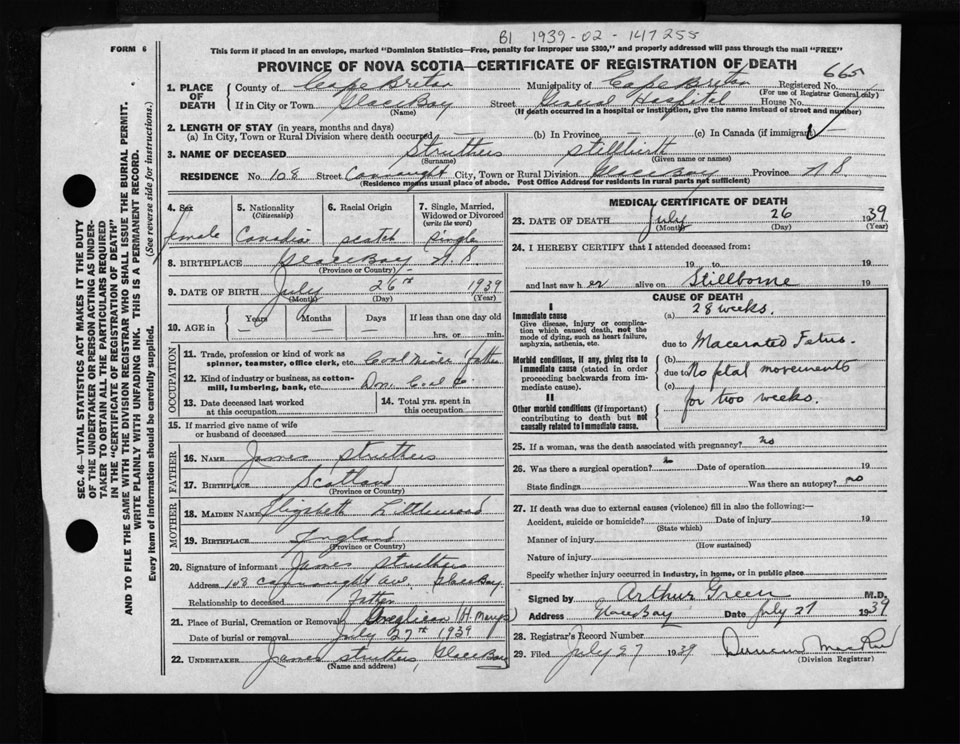 B1 1939-02-147255
FORM 6
This form if placed in an envelope, marked "Dominion Statistics—Free, penalty for improper use $300," and properly addressed will pass through the mail "FREE"
PROVINCE OF NOVA SCOTIA—CERTIFICATE OF REGISTRATION OF DEATH
665
1. PLACE OF DEATH County of Cape Breton Municipality of Cape Breton Registered No. (For use of Registrar General only)
If in City or Town Glace Bay (Name) Street General Hospital House No.
(If death occurred in a hospital or institution, give the name instead of street and number)
2. LENGTH OF STAY (in years, months and days)
(a) In City, Town or Rural Division where death occurred — (b) In Province — (c) In Canada (if immigrant)
3. NAME OF DECEASED Struthers (Surname) Stillbirth (Given name or names)
RESIDENCE No. 108 Street Connaught City, Town or Rural Division Glace Bay Province N.S.
(Residence means usual place of abode. Post Office Address for residents in rural parts not sufficient)
4. Sex female
5. Nationality (Citizenship) Canadian
6. Racial Origin Scotch
7. Single, Married, Widowed or Divorced (write the word) Single
8. BIRTHPLACE Glace Bay N.S. (Province or Country)
9. DATE OF BIRTH July (Month) 26th (Day) 1939 (Year)
10. AGE in Years Months Days If less than one day old hrs. or min.
OCCUPATION
11. Trade, profession or kind of work as spinner, teamster, office clerk, etc. Coal Miner father
12. Kind of industry or business, as cotton-mill, lumbering, bank, etc. Dom. Coal Co.
13. Date deceased last worked at this occupation
14. Total yrs. spent in this occupation
15. If married give name of wife or husband of deceased
FATHER
16. NAME James Struthers
17. BIRTHPLACE Scotland (Province or Country)
MOTHER
18. MAIDEN NAME Elizabeth Littlewood
19. BIRTHPLACE England (Province or Country)
20. Signature of informant James Struthers
Address 108 Connaught Ave. Glace Bay
Relationship to deceased Father
21. Place of Burial, Cremation or Removal Anglican (St. Mary's)
Date of burial or removal July 27th 1939
22. UNDERTAKER James Struthers Glace Bay
(Name and address)
MEDICAL CERTIFICATE OF DEATH
23. DATE OF DEATH July (Month) 26 (Day) 1939 (Year)
24. I HEREBY CERTIFY that I attended deceased from:
19 to 19
and last saw her alive on Stillborne 19
CAUSE OF DEATH
I
Immediate cause
Give disease, injury or complication which caused death, not the mode of dying, such as heart failure, asphyxia, asthenia, etc.
(a) 28 weeks.
due to Macerated Fetus.
Morbid conditions, if any, giving rise to immediate cause (stated in order proceeding backwards from immediate cause).
(b)
due to No fetal movements
(c)
for two weeks.
II
Other morbid conditions (if important) contributing to death but not causally related to immediate cause.
25. If a woman, was the death associated with pregnancy? no
26. Was there a surgical operation? Date of operation 19
State findings Was there an autopsy? no
27. If death was due to external causes (violence) fill in also the following:—
Accident, suicide or homicide? (State which) Date of injury 19
Manner of injury (How sustained)
Nature of injury
Specify whether injury occurred in industry, in home, or in public place
Signed by Arthur Green M.D.
Address Glace Bay Date July 27 1939
28. Registrar's Record Number
29. Filed July 27 1939 Duncan MacRae
(Division Registrar)
SEC. 46—VITAL STATISTICS ACT MAKES IT THE DUTY
OF THE UNDERTAKER OR PERSON ACTING AS UNDER-
TAKER TO OBTAIN ALL THE PARTICULARS REQUIRED
IN THE "CERTIFICATE OF REGISTRATION OF DEATH"
AND TO FILE THE SAME WITH THE DIVISION REGISTRAR WHO SHALL ISSUE THE BURIAL PERMIT.
WRITE PLAINLY WITH UNFADING INK. THIS IS A PERMANENT RECORD.
Every item of information should be carefully supplied. (See reverse side for instructions.)